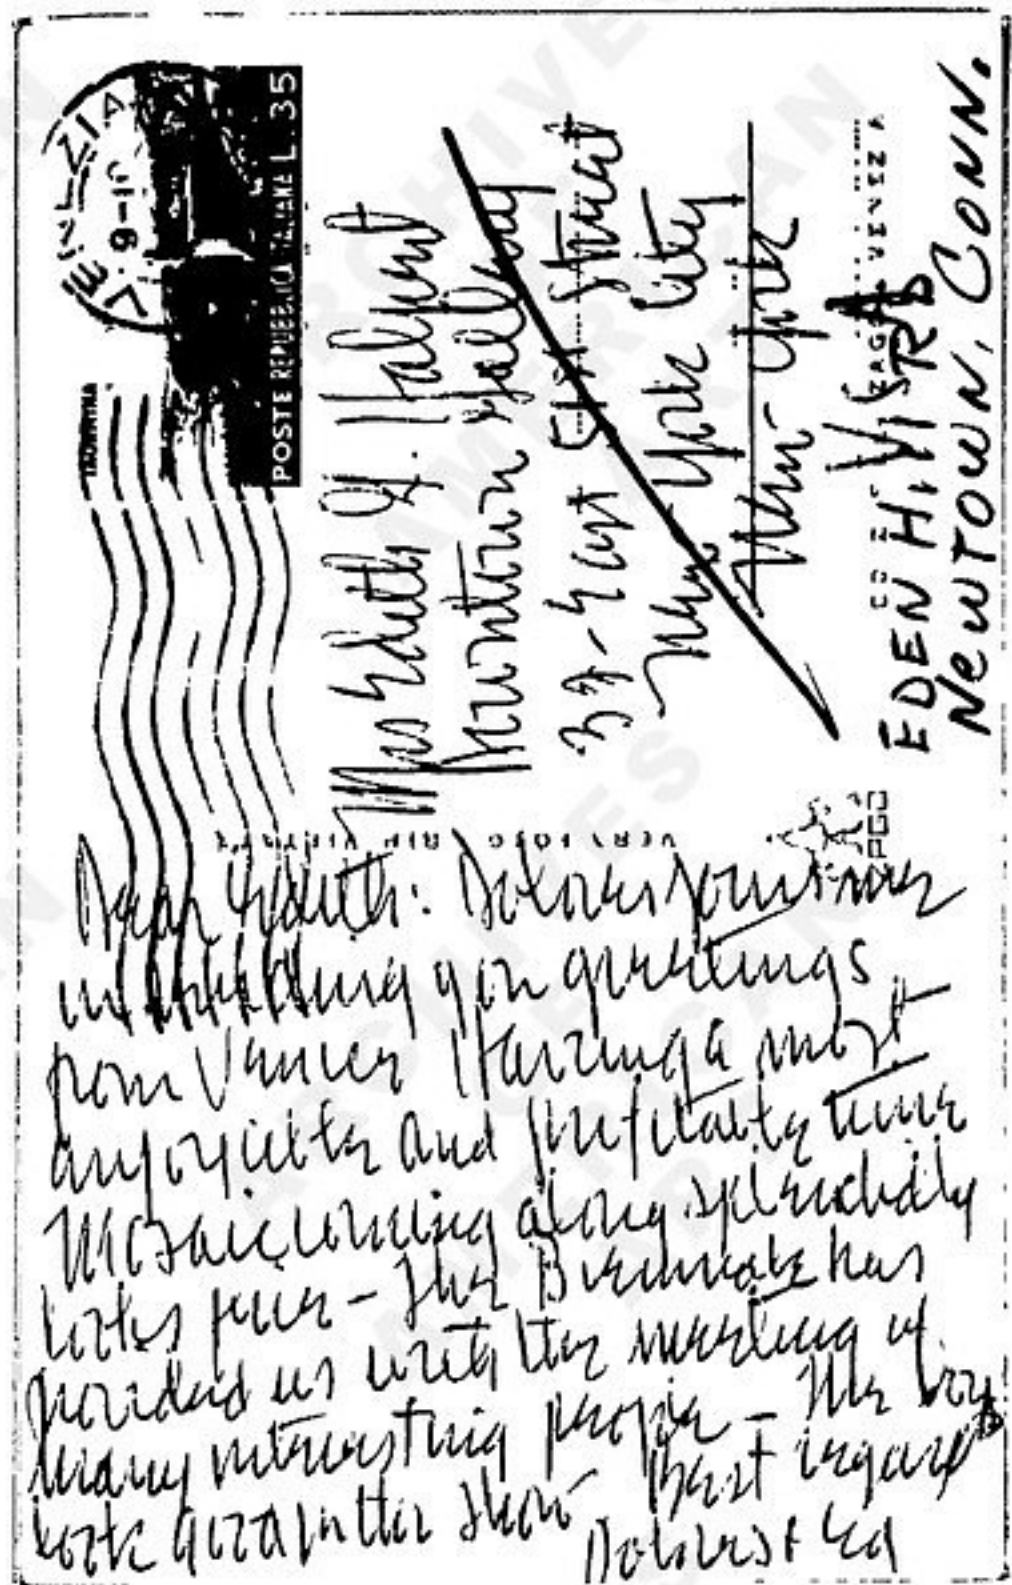 VENEZIA
9-11
TAORMINA
POSTE REPUBBLICA ITALIANA L. 35
Mrs Edith G. Halpert
Downtown Gallery
32 - East 51st Street
New York City
New York
EDEN HILL RD
NEWTOWN, CONN.
Dear Edith: Dolores joins me
in sending you greetings
from Venice Having a most
enjoyable and profitable time
Mosaic coming along splendidly
looks fine - The Biennale has
provided us with the meeting of
many interesting people - The boys
look good in the show Best regards
Dolores & Ed